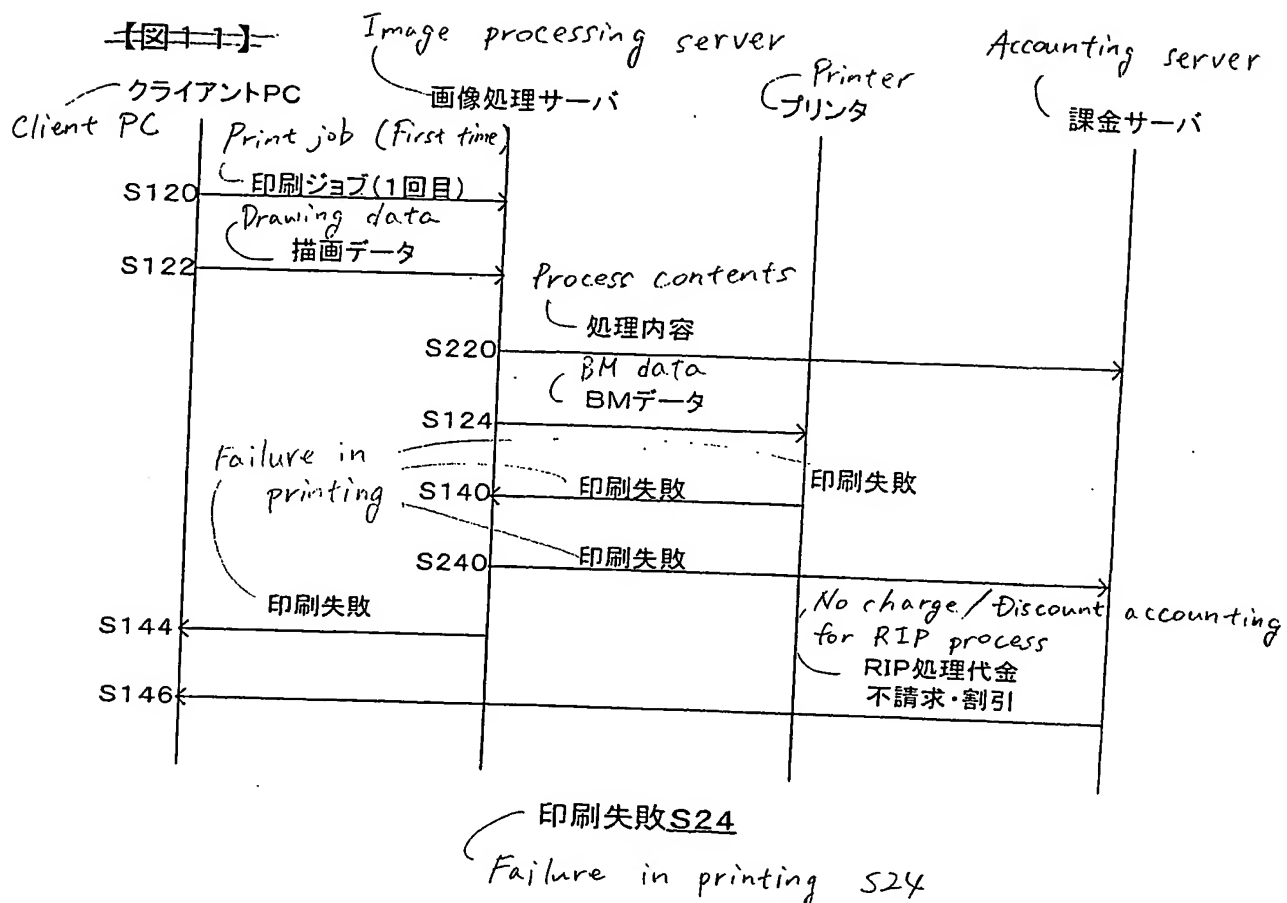 【図11】
Image processing server
Printer
Accounting server
クライアントPC
画像処理サーバ
プリンタ
課金サーバ
Client PC
Print job (First time)
S120
印刷ジョブ(1回目)
Drawing data
描画データ
S122
Process contents
処理内容
S220
BM data
BMデータ
S124
Failure in
printing
印刷失敗
S140
印刷失敗
S240
印刷失敗
印刷失敗
S144
No charge / Discount accounting
for RIP process
RIP処理代金
不請求・割引
S146
印刷失敗S24
Failure in printing S24